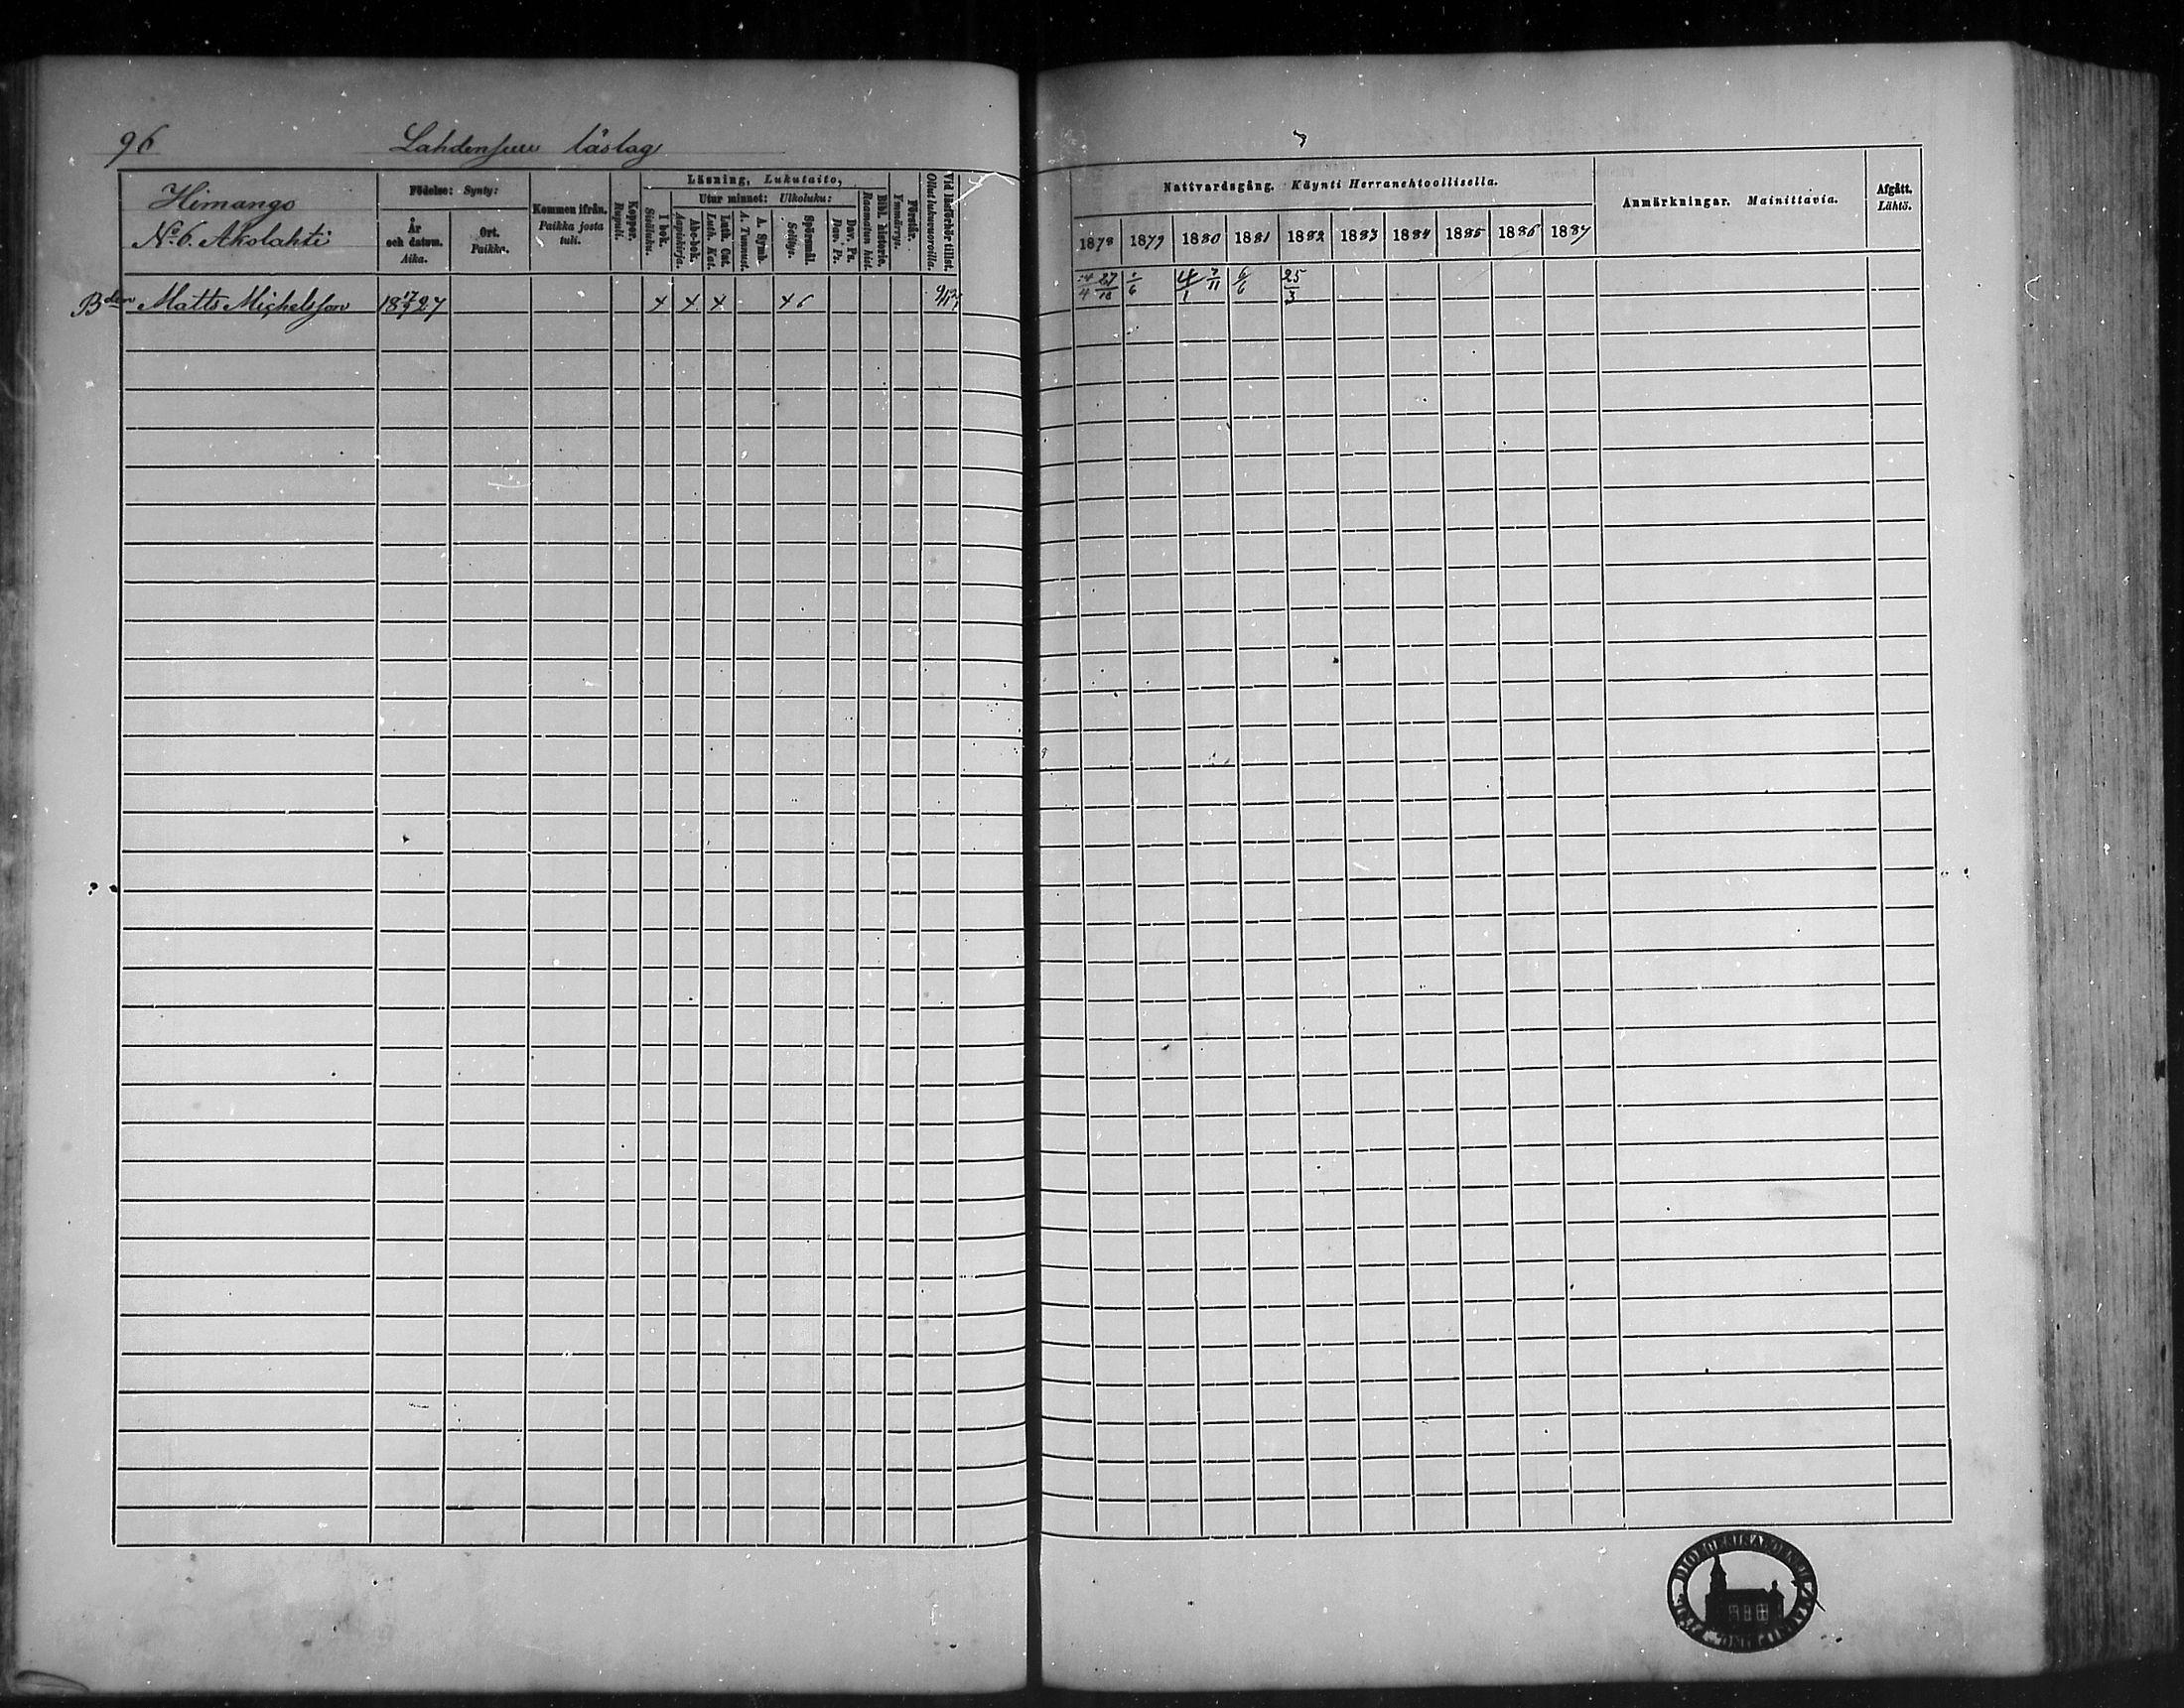 96
Lahdensuu läslag
Himango
No 6. Akolahti
Födelse: Synty:
År och datum. Aika.
Ort. Paikka.
Kommen ifrån. Paikka josta tuli.
Koppor. Rupuli.
Läsning, Lukutaito,
I bok. Sisäluku.
Utur minnet: Ulkoluku:
Abc-bok. Aapiskirja.
Luth. Cat. Luth. Kat.
A. Symb. A. Tunnust.
Spörsmål. Selitys.
Dav. Ps. Dav. Ps.
Bibl. historie. Raamatun hist.
Förstår. Ymmärrys.
Vid läsförhör tillst. Ollut lukuvuoroilla.
Nattvardsgång. Käynti Herranehtoollisella.
1878 1879 1880 1881 1882 1883 1884 1885 1886 1887
Anmärkningar. Mainittavia.
Afgått. Lähtö.
Bden Matts Michelsson 18 17/9 27 x x x x 6
27/10 4/1 7/11 6/6 25/3